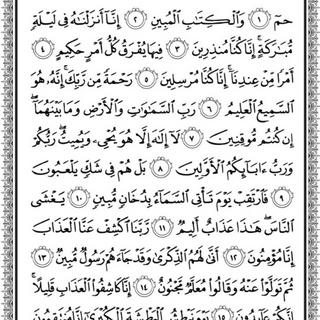 حمٓ ١ وَٱلْكِتَٰبِ ٱلْمُبِينِ ٢ إِنَّآ أَنزَلْنَٰهُ فِى لَيْلَةٍ
مُّبَٰرَكَةٍ ۚ إِنَّا كُنَّا مُنذِرِينَ ٣ فِيهَا يُفْرَقُ كُلُّ أَمْرٍ حَكِيمٍ ٤
أَمْرًا مِّنْ عِندِنَآ ۚ إِنَّا كُنَّا مُرْسِلِينَ ٥ رَحْمَةً مِّن رَّبِّكَ ۚ إِنَّهُۥ هُوَ
ٱلسَّمِيعُ ٱلْعَلِيمُ ٦ رَبِّ ٱلسَّمَٰوَٰتِ وَٱلْأَرْضِ وَمَا بَيْنَهُمَآ ۖ
إِن كُنتُم مُّوقِنِينَ ٧ لَآ إِلَٰهَ إِلَّا هُوَ يُحْىِۦ وَيُمِيتُ ۖ رَبُّكُمْ
وَرَبُّ ءَابَآئِكُمُ ٱلْأَوَّلِينَ ٨ بَلْ هُمْ فِى شَكٍّ يَلْعَبُونَ
٩ فَٱرْتَقِبْ يَوْمَ تَأْتِى ٱلسَّمَآءُ بِدُخَانٍ مُّبِينٍ ١٠ يَغْشَى
ٱلنَّاسَ ۖ هَٰذَا عَذَابٌ أَلِيمٌ ١١ رَّبَّنَا ٱكْشِفْ عَنَّا ٱلْعَذَابَ
إِنَّا مُؤْمِنُونَ ١٢ أَنَّىٰ لَهُمُ ٱلذِّكْرَىٰ وَقَدْ جَآءَهُمْ رَسُولٌ مُّبِينٌ ١٣
ثُمَّ تَوَلَّوْا۟ عَنْهُ وَقَالُوا۟ مُعَلَّمٌ مَّجْنُونٌ ١٤ إِنَّا كَاشِفُوا۟ ٱلْعَذَابِ قَلِيلًا ۚ
إِنَّكُمْ عَآئِدُونَ ١٥ يَوْمَ نَبْطِشُ ٱلْبَطْشَةَ ٱلْكُبْرَىٰٓ إِنَّا مُنتَقِمُونَ